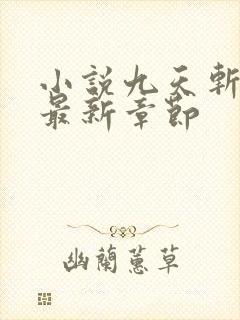 小說九天斬
最新章節
幽蘭蕙草